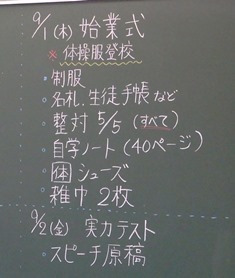 9/1(木) 始業式
※体操服登校
・制服
・名札、生徒手帳など
・整対 5/5 (すべて)
・自学ノート(40ページ)
・体シューズ
・雑巾2枚
9/2(金) 実力テスト
・スピーチ原稿